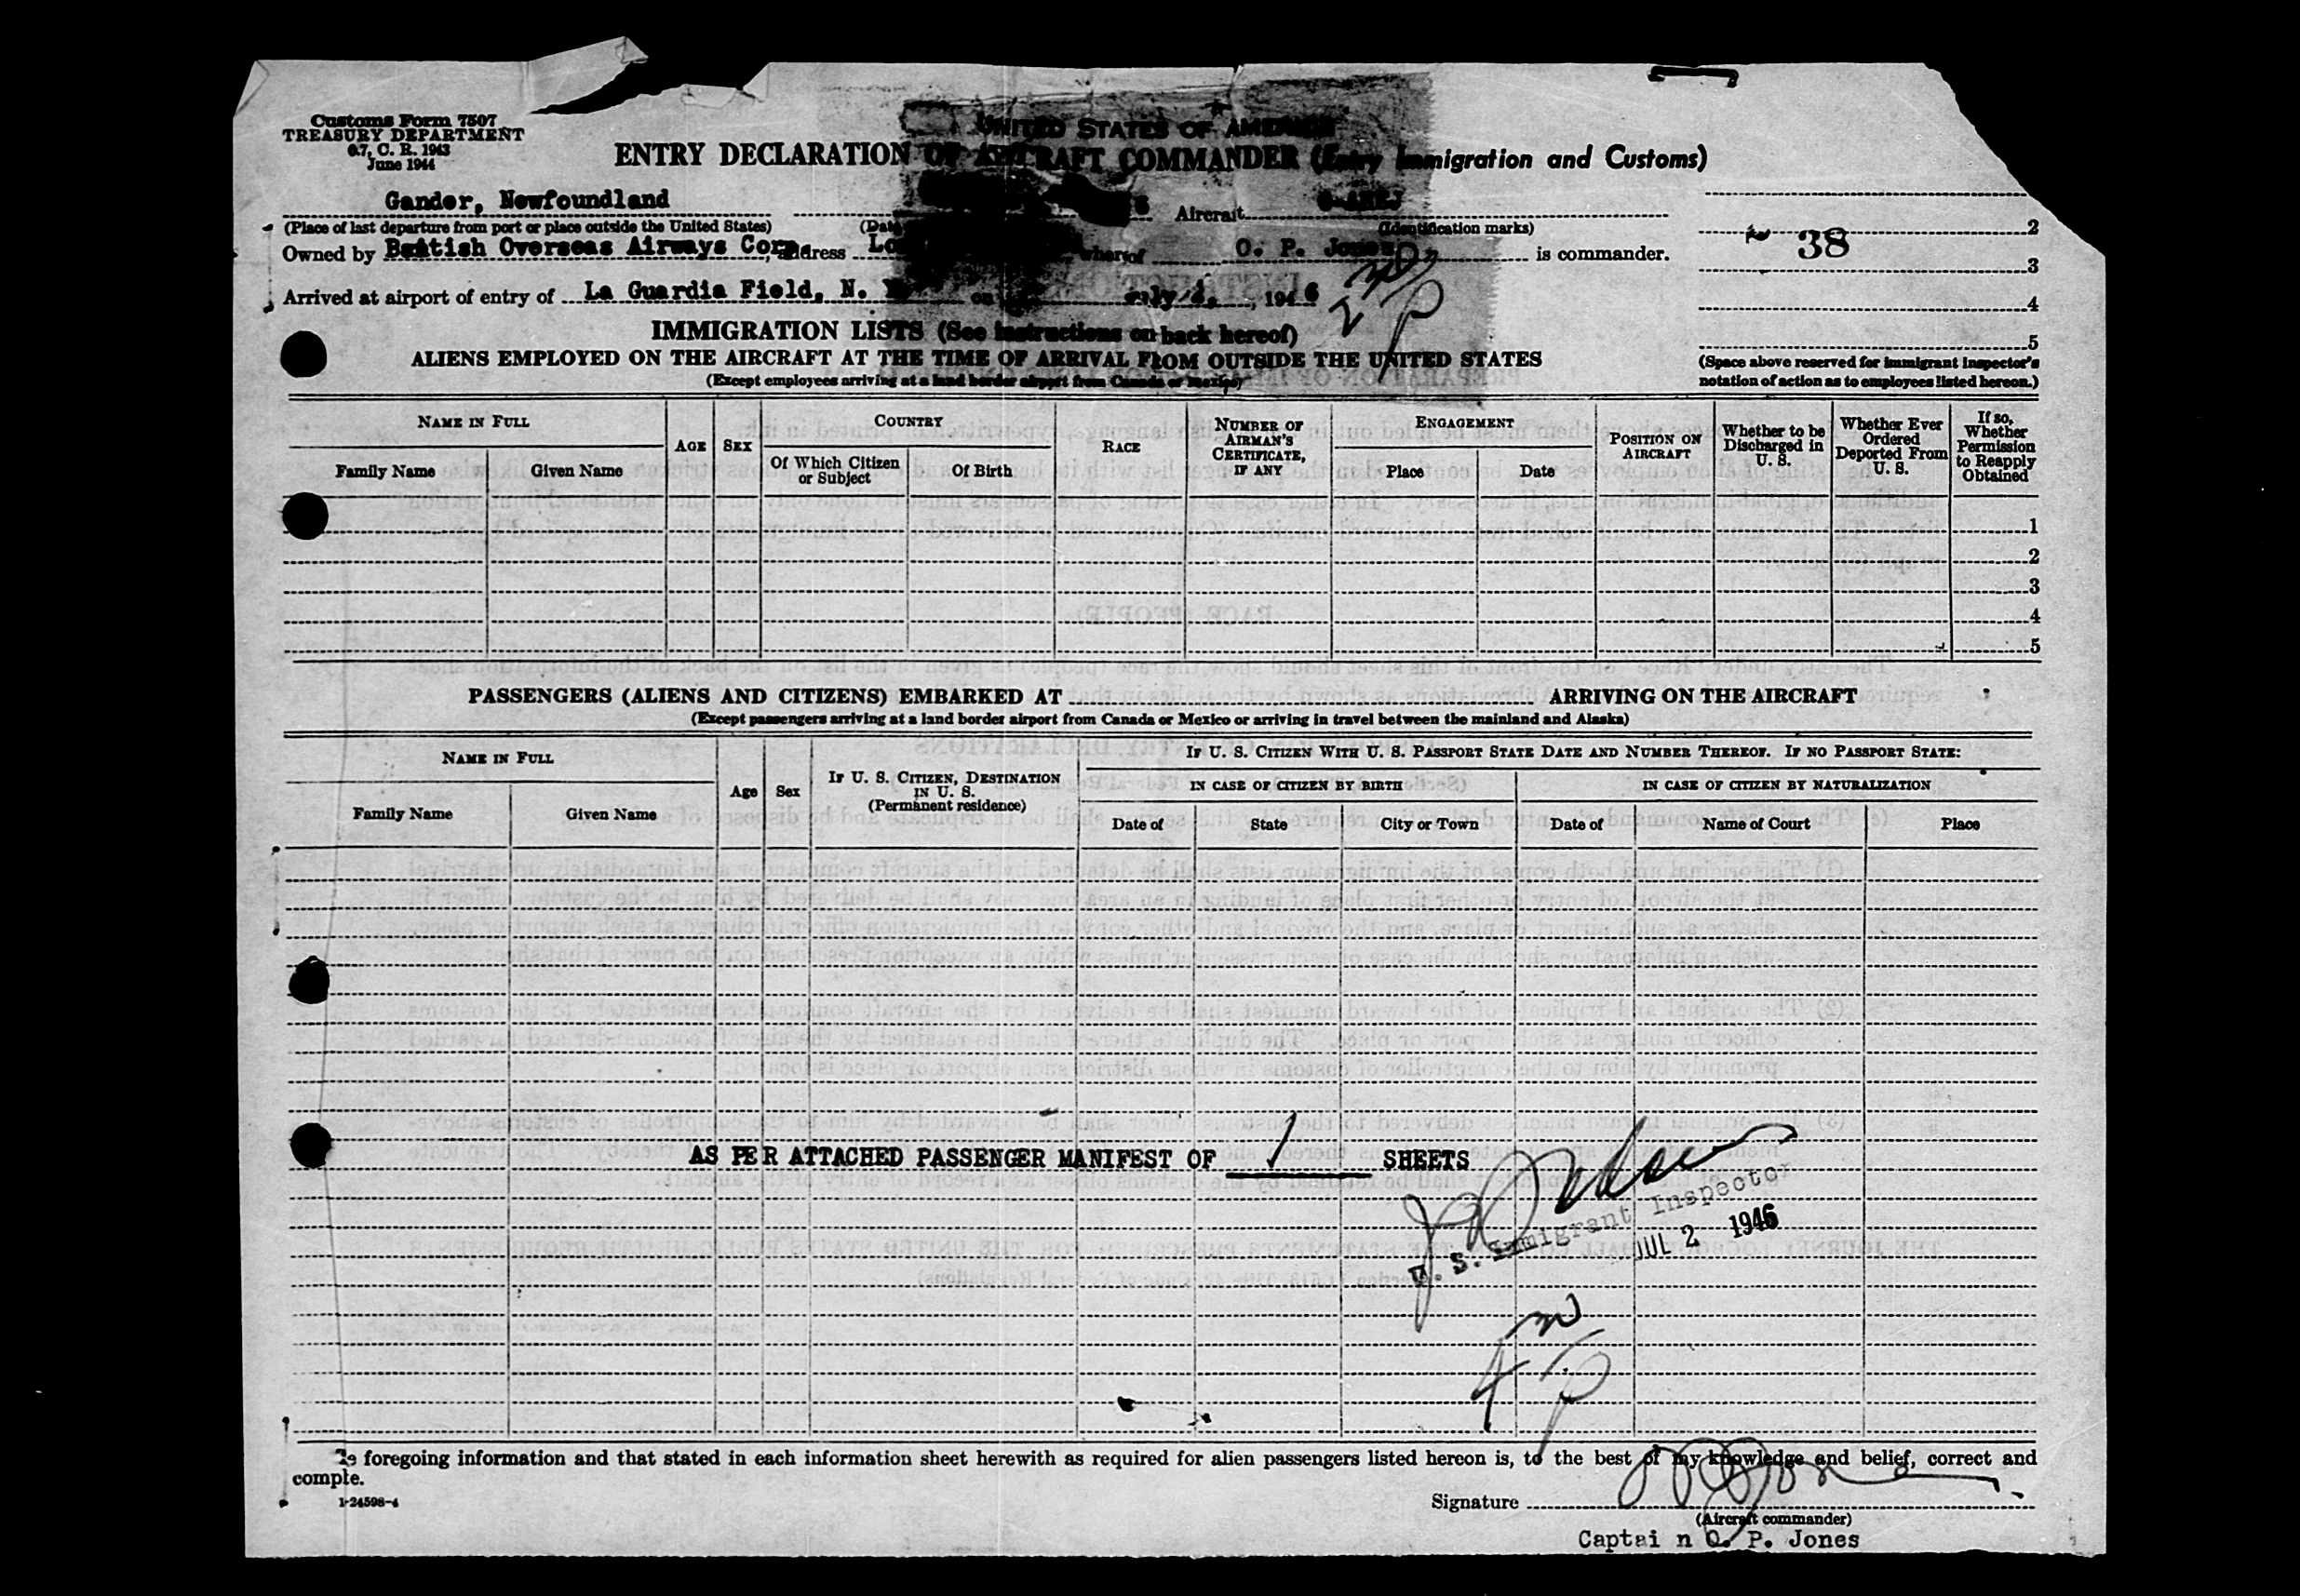 Customs Form 7507
TREASURY DEPARTMENT
C. R. 1943
June 1944
UNITED STATES OF AMERICA
ENTRY DECLARATION OF AIRCRAFT COMMANDER (Entry Immigration and Customs)
Gander, Newfoundland Aircraft
(Place of last departure from port or place outside the United States) (Date (Identification marks)
Owned by British Overseas Airways Corp., address whereof O. P. Jones is commander.
Arrived at airport of entry of La Guardia Field, N. on 1946
38
2
3
4
5
(Space above reserved for immigrant inspector's
notation of action as to employees listed hereon.)
IMMIGRATION LISTS (See instructions on back hereof)
ALIENS EMPLOYED ON THE AIRCRAFT AT THE TIME OF ARRIVAL FROM OUTSIDE THE UNITED STATES
(Except employees arriving at a land border airport from Canada or Mexico)
NAME IN FULL
Family Name
Given Name
AGE
SEX
COUNTRY
Of Which Citizen
or Subject
Of Birth
RACE
NUMBER OF
AIRMAN'S
CERTIFICATE,
IF ANY
ENGAGEMENT
Place
Date
POSITION ON
AIRCRAFT
Whether to be
Discharged in
U. S.
Whether Ever
Ordered
Deported From
U. S.
If so,
Whether
Permission
to Reapply
Obtained
1
2
3
4
5
PASSENGERS (ALIENS AND CITIZENS) EMBARKED AT ARRIVING ON THE AIRCRAFT
(Except passengers arriving at a land border airport from Canada or Mexico or arriving in travel between the mainland and Alaska)
NAME IN FULL
Family Name
Given Name
Age
Sex
IF U. S. CITIZEN, DESTINATION
IN U. S.
(Permanent residence)
IF U. S. CITIZEN WITH U. S. PASSPORT STATE DATE AND NUMBER THEREOF. IF NO PASSPORT STATE:
IN CASE OF CITIZEN BY BIRTH
IN CASE OF CITIZEN BY NATURALIZATION
Date of
State
City or Town
Date of
Name of Court
Place
AS PER ATTACHED PASSENGER MANIFEST OF 1 SHEETS
U. S. Immigrant Inspector
JUL 2 1946
foregoing information and that stated in each information sheet herewith as required for alien passengers listed hereon is, to the best of my knowledge and belief, correct and
comple.
1-24598-4
Signature O P Jones
(Aircraft commander)
Captai n O. P. Jones